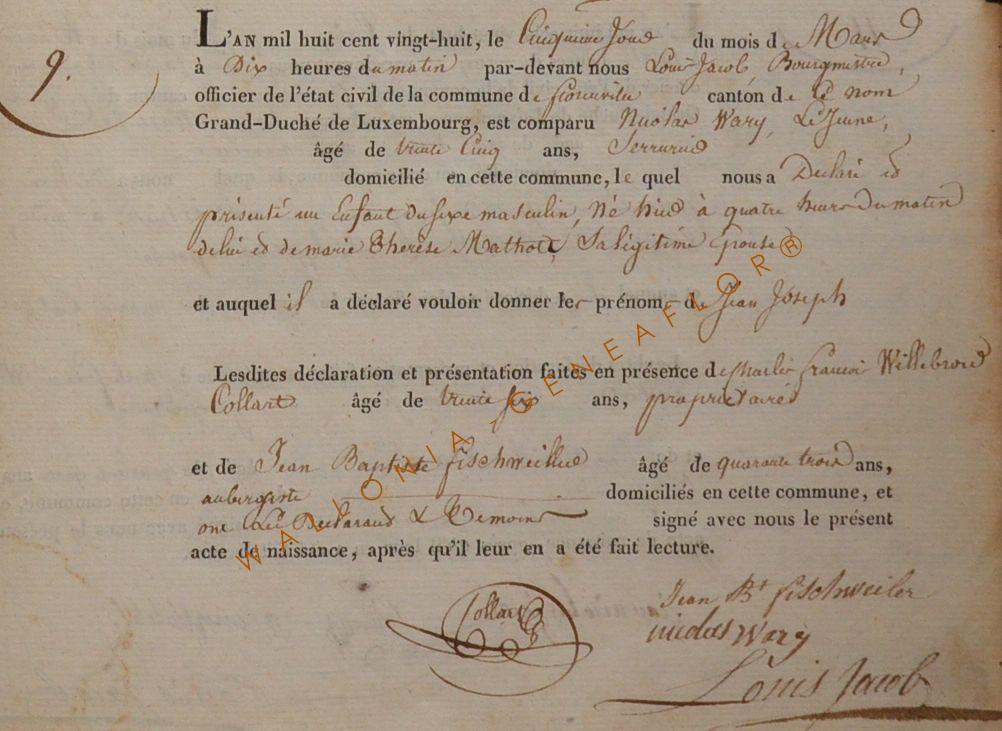 9.
L'AN mil huit cent vingt-huit, le Cinquieme Jour du mois de Mars
à Dix heures du matin par-devant nous Louis Jacob, Bourgmestre,
officier de l'état civil de la commune de canton de ce nom
Grand-Duché de Luxembourg, est comparu Nicolas Wary, Le Jeune,
âgé de trente Cinq ans, Serrurier
domicilié en cette commune, le quel nous a Déclaré et
présenté un Enfant du sexe masculin, Né hier à quatre heures du matin
de lui et de marie Thérèse Mathot, Sa légitime Epouse
et auquel il a déclaré vouloir donner les prénoms de Jean Joseph
Lesdites déclaration et présentation faites en présence de Charles Francois Willebrord
Collart âgé de trente six ans, propriétaire
et de Jean Baptiste fischweiller âgé de quarante trois ans,
aubergiste domiciliés en cette commune, et
ont Les Declarant & Temoins signé avec nous le présent
acte de naissance, après qu'il leur en a été fait lecture.
Collart
Jean Bt fischweiler
nicolas Wary
Louis Jacob
WALLONIA-GENEAFLOR®